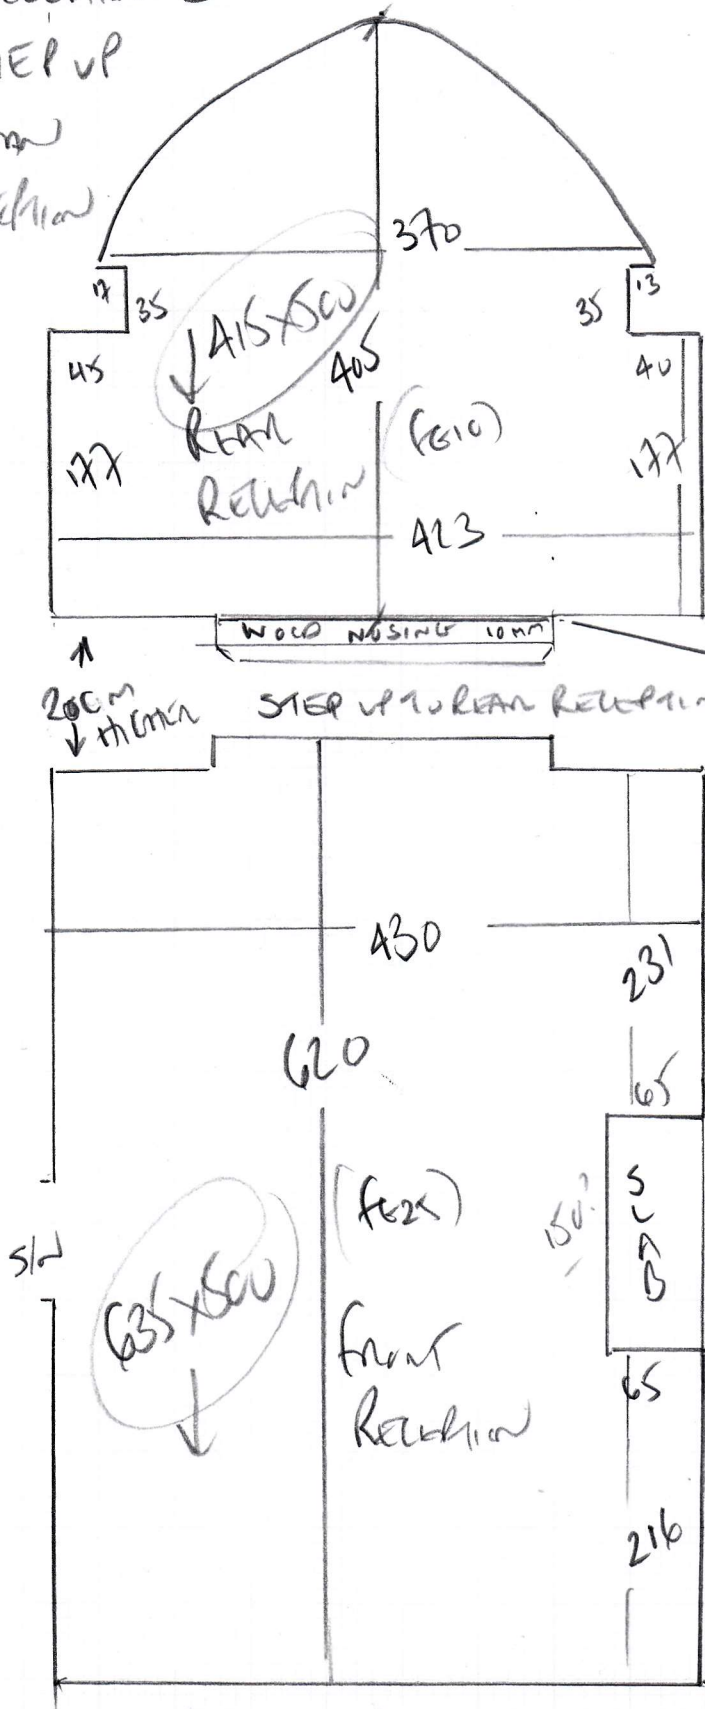 STEP UP
370
17
35
35
13
415x500
405
45
40
REAR
RECEPTION
(FE10)
177
177
423
WOOD NOSING 10MM
20CM
HIGHER
STEP UP TO REAR RECEPTION
430
231
620
65
SLAB
150?
(FE25)
S/W
635x500
FRONT
RECEPTION
65
216